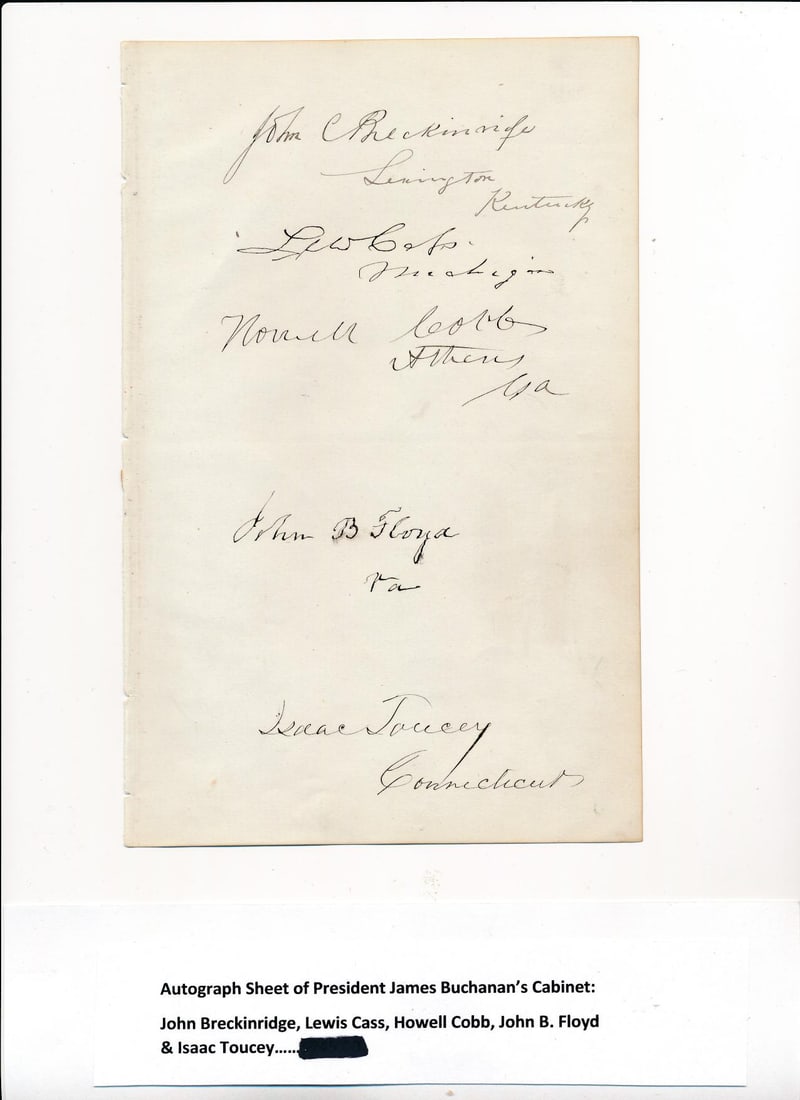 John C Breckinridge
Lexington
Kentucky
Lew Cass.
Michigan
Howell Cobb
Athens
Ga
John B Floyd
Va
Isaac Toucey
Connecticut
Autograph Sheet of President James Buchanan’s Cabinet:
John Breckinridge, Lewis Cass, Howell Cobb, John B. Floyd
& Isaac Toucey……